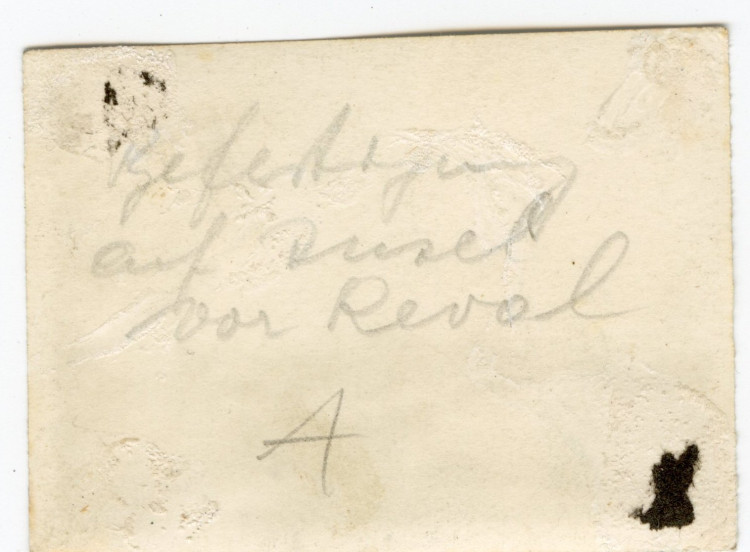 Befestigung
auf Insel
vor Reval
A